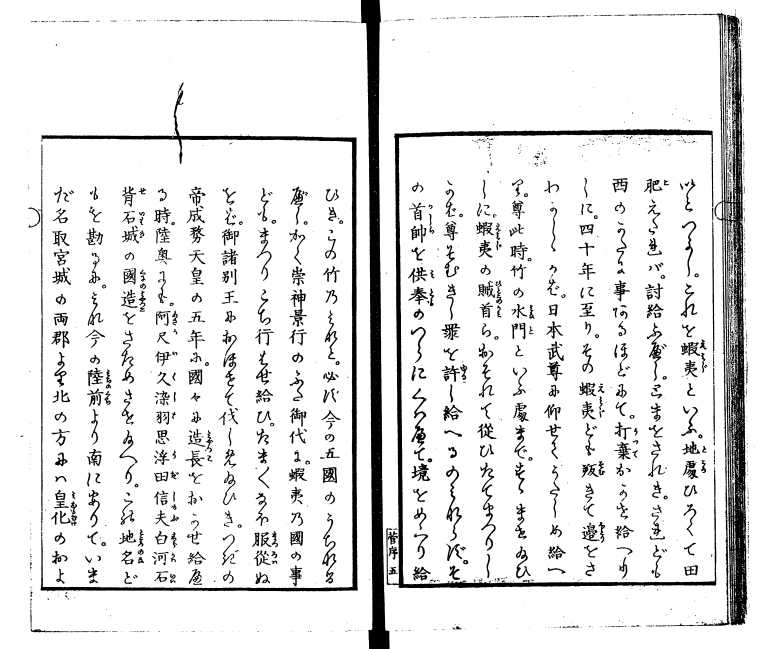 いとつよし。これを蝦夷といふ。地處ひろくて田
肥えたれバ。討給ふべし。とまをされき。されども
西のかたに事あるほどにて。打棄おかせ給へり
しに。四十年に至り。その蝦夷ども叛きて邊をさ
わがしかば。日本武尊に仰せてうたしめ給へ
り。尊此時。竹の水門といふ處まで。すすませ給ひ
しに。蝦夷の賊首ら。おそれて從ひたてまつりし
かば。尊そむきし罪を許し給へるのみならず。そ
の首帥を供奉のつらにくはへて。境をめぐり給
ひき。この竹乃みなと。必ず今の五國のうちなる
べし。かく崇神景行のふた御代に。蝦夷乃國の事
ども。まつりごち行はせ給ひ。たまくなほ服從ぬ
をば。御諸別王におほせて伐しめ給ひき。つぎの
帝成務天皇の五年に。國々に造長をおかせ給へ
る時。陸奥にも。阿尺伊久染羽思浮田信夫白河石
背石城の國造をさだめさせ給へり。これ地名ど
もを勘るに。みな今の陸前より南にありて。いま
だ名取宮城の両郡より北の方にハ皇化のおよ
菅序 五